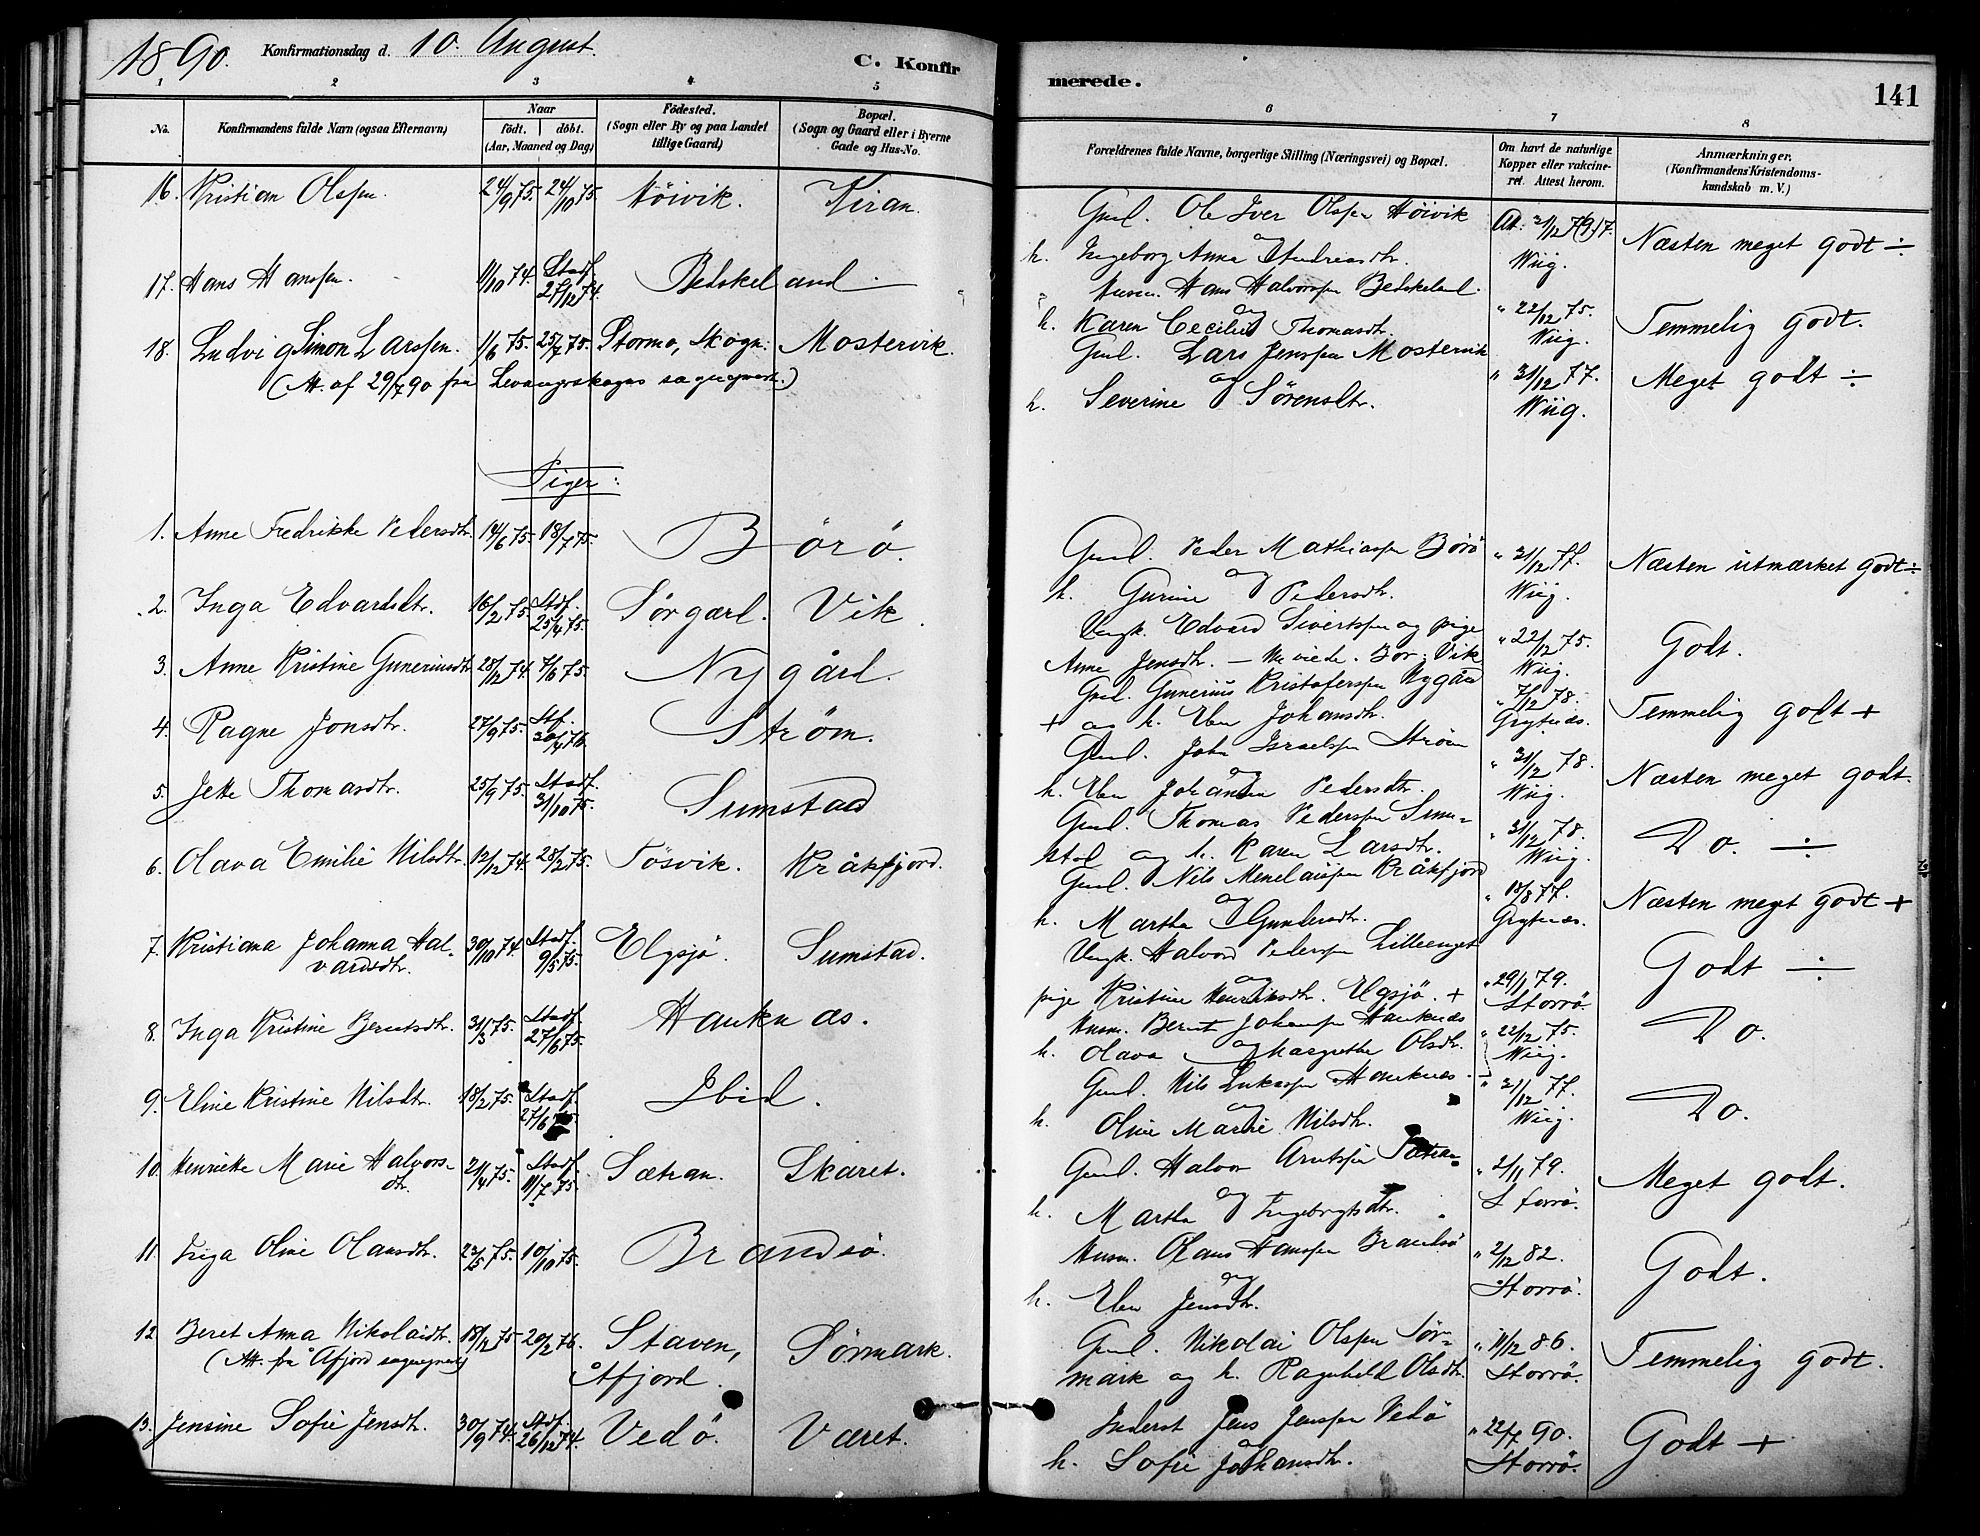 1890. Konfirmationsdag d. 10. August. C. Konfir
merede. 141
1 2 3 4 5 6 7 8
No. Konfirmandens fulde Navn (ogsaa Efternavn) Naar födt. döbt. (Aar, Maaned og Dag) Födested. (Sogn eller By og paa Landet tillige Gaard) Bopæl. (Sogn og Gaard eller i Byerne Gade og Hus-No.
Forældrenes fulde Navne, borgerlige Stilling (Næringsvei) og Bopæl. Om havt de naturlige Kopper eller vakcineret. Attest herom. Anmærkninger. (Konfirmandens Kristendomskundskab m. V.)
16. Kristian Olssen. 24/9 75. 24/10 75. Nöivik. Kiran.
Gmd. Ole Iver Olssen Höivik
og
h. Ingeborg Anna Andreasdtr. Wiig. Næsten meget godt ÷
17. Hans Hanssen. 11/10 74. Stadf. 27/12 74. Bedskeland
Husm. Hans Halvorssen Bedskeland
og
h. Karen Thomasdtr. " 22/12 75. Wiig. Temmelig godt.
18. Ludvig Simon Larssen. 1/6 75. 25/7 75. Stormo, Skogn. Mostervik.
(Att. af 29/7 90 fra Levangerskogns sognepræst.)
Gmd. Lars Jenssen Mostervik
og
h. Severine Sörensdtr. " 31/12 77. Wiig. Meget godt ÷
Piger:
1. Anne Fredrikke Pedersdtr. 14/6 75. 18/7 75. Börö.
Gmd. Peder Mathiassen Börö
og
h. Gurine Pedersdtr. " 31/12 77. Wiig. Næsten utmærket godt ÷
2. Inga Edvardsdtr. 16/2 75. Stdf. 25/4 75. Sörgærd. Vik.
Ungk. Edvard Sivertssen og pige
Anne Jensdtr. " 22/12 75. Wiig. Godt.
3. Anne Kristine Guneriusdtr. 28/12 74. 7/6 75. Nygård.
Gmd. Gunerius Kristofersssen Nygård
+ og h. Elen Johansdtr. " 7/12 78. Grytnæs. Temmelig godt +
4. Ragne Jonsdtr. 27/9 75. Stf. 30/4 76. Ström.
Gmd. John Israelssen Ström
og
h. Elen Johanna Pedersdtr. " 31/12 78. Wiig. Næsten meget godt.
5. Jette Thomasdtr. 25/9 75. Stadf. 31/10 75. Sumstad
Gmd. Thomas Pederssen Sum-
stad og h. Karen Larsdtr. " 31/12 78. Wiig. Do. ÷
6. Olava Emilie Nilsdtr. 12/12 74. 28/2 75. Tösvik. Kråkfjord.
Gmd. Nils Menelaissen Kråkfjord
og
h. Martha Gundersdtr. " 18/8 77. Grytnæs. Næsten meget godt +
7. Kristiana Johanna Hal-
vardsdtr. 30/10 74. Stadf. 9/5 75. Elgsjö. Sumstad.
Ungk. Halvard Pederssen Lilleenget
og
pige Kristine Henriksdtr. Elgsjö. + " 29/1 79. Storrö. Godt ÷
8. Inga Kristine Berntsdtr. 31/3 75. Stadf. 27/6 75. Hauknæs.
Husm. Bernt Johanssen Hauknæs
og
h. Olava Margrethe Olsdtr. " 22/12 75. Wiig. Do.
9. Eline Kristine Nilsdtr. 18/2 75. Stadf. 27/6 75. Ibid.
Gmd. Nils Lukassen Hauknæs
og
h. Oline Marie Nilsdtr. " 31/12 77. Wiig. Do.
10. Henrikke Marie Halvors-
dtr. 21/4 75. Stadf. 11/7 75. Sætran. Skaret.
Gmd. Halvor Arntssen Sætran
og
h. Martha Ingebrigtsdtr. " 2/11 79. Storrö. Meget godt.
11. Inga Oline Olausdtr. 23/5 75. 10/10 75. Brandsö.
Husm. Olaus Hanssen Brandsö
og
h. Elen Jensdtr. " 2/12 82. Storrö. Godt.
12. Beret Anna Nikolaidtr. 18/12 75. 20/2 76. Staven, Åfjord. Sörmark.
(Att. fra Åfjord sognepræst)
Gmd. Nikolai Olssen Sör-
mark og h. Ragnhild Olsdtr. " 11/12 86. Storrö. Temmelig godt.
13. Jensine Sofie Jensdtr. 30/9 74. Stdf. 26/12 74. Vedö. Været.
Inderst Jens Jenssen Vedö
og
h. Sofie Johansdtr. " 22/7 90. Storrö. Godt +